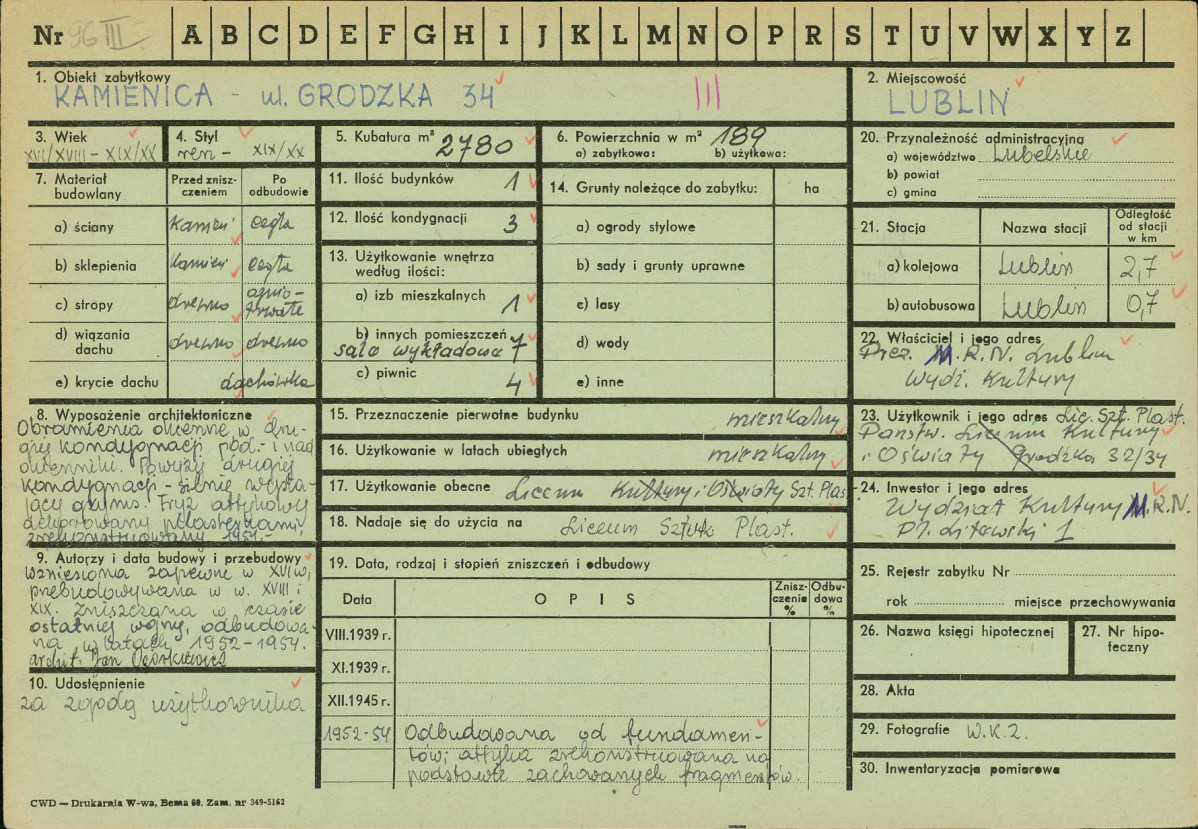 Nr 96 III
A B C D E F G H I J K L M N O P R S T U V W X Y Z
1. Obiekt zabytkowy
KAMIENICA - ul. GRODZKA 34
III
2. Miejscowość
LUBLIN
3. Wiek
XVI/XVIII - XIX/XX
4. Styl
ren - XIX/XX
5. Kubatura m³ 2780
6. Powierzchnia w m² 189
a) zabytkowa: b) użytkowa:
7. Materiał budowlany
Przed zniszczeniem
Po odbudowie
a) ściany kamień cegła
b) sklepienia kamień cegła
c) stropy drewno ognio-
trwałe
d) wiązania dachu drewno drewno
e) krycie dachu dachówka
8. Wyposażenie architektoniczne
Obramienia okienne w dru-
giej kondygnacji pod- i nad
okienniki. Powyżej drugiej
kondygnacji - silnie wysta-
jący gzyms. Fryz attykowy
dekorowany pilasterkami,
zrekonstruowany 1954.-
9. Autorzy i data budowy i przebudowy
Wzniesiona zapewne w XVI w,
przebudowywana w w. XVIII i
XIX. Zniszczona w czasie
ostatniej wojny, odbudowa-
na w latach 1952-1954.
archit. Jan
10. Udostępnienie
za zgodą użytkownika
11. Ilość budynków 1
12. Ilość kondygnacji 3
13. Użytkowanie wnętrza
według ilości:
a) izb mieszkalnych 1
b) innych pomieszczeń 7
sale wykładowe
c) piwnic 4
14. Grunty należące do zabytku: ha
a) ogrody stylowe
b) sady i grunty uprawne
c) lasy
d) wody
e) inne
15. Przeznaczenie pierwotne budynku mieszkalny
16. Użytkowanie w latach ubiegłych mieszkalny
17. Użytkowanie obecne Liceum Kultury i Oświaty Szt. Plas
18. Nadaje się do użycia na Liceum Sztuk Plast.
19. Data, rodzaj i stopień zniszczeń i odbudowy
Data
OPIS
Zniszczenia %
Odbudowa %
VIII.1939 r.
XI.1939 r.
XII.1945 r.
1952-54 Odbudowana od fundamen-
tów; attyka zrekonstruowana na
podstawie zachowanych fragmentów.
20. Przynależność administracyjna
a) województwo Lubelskie
b) powiat
c) gmina
21. Stacja
Nazwa stacji
Odległość od stacji w km
a) kolejowa Lublin 2,7
b) autobusowa Lublin 0,7
22. Właściciel i jego adres
Prez. M.R.N. Lublin
Wydz. Kultury
23. Użytkownik i jego adres Lic. Szt. Plast.
Państw. Liceum Kultury
i Oświaty Grodzka 32/34
24. Inwestor i jego adres
Wydział Kultury M.R.N.
Pl. Litewski 1
25. Rejestr zabytku Nr
rok miejsce przechowywania
26. Nazwa księgi hipotecznej
27. Nr hipoteczny
28. Akta
29. Fotografie W.K.Z.
30. Inwentaryzacja pomiarowa
CWD — Drukarnia W-wa, Bema 60. Zam. nr 349-5162